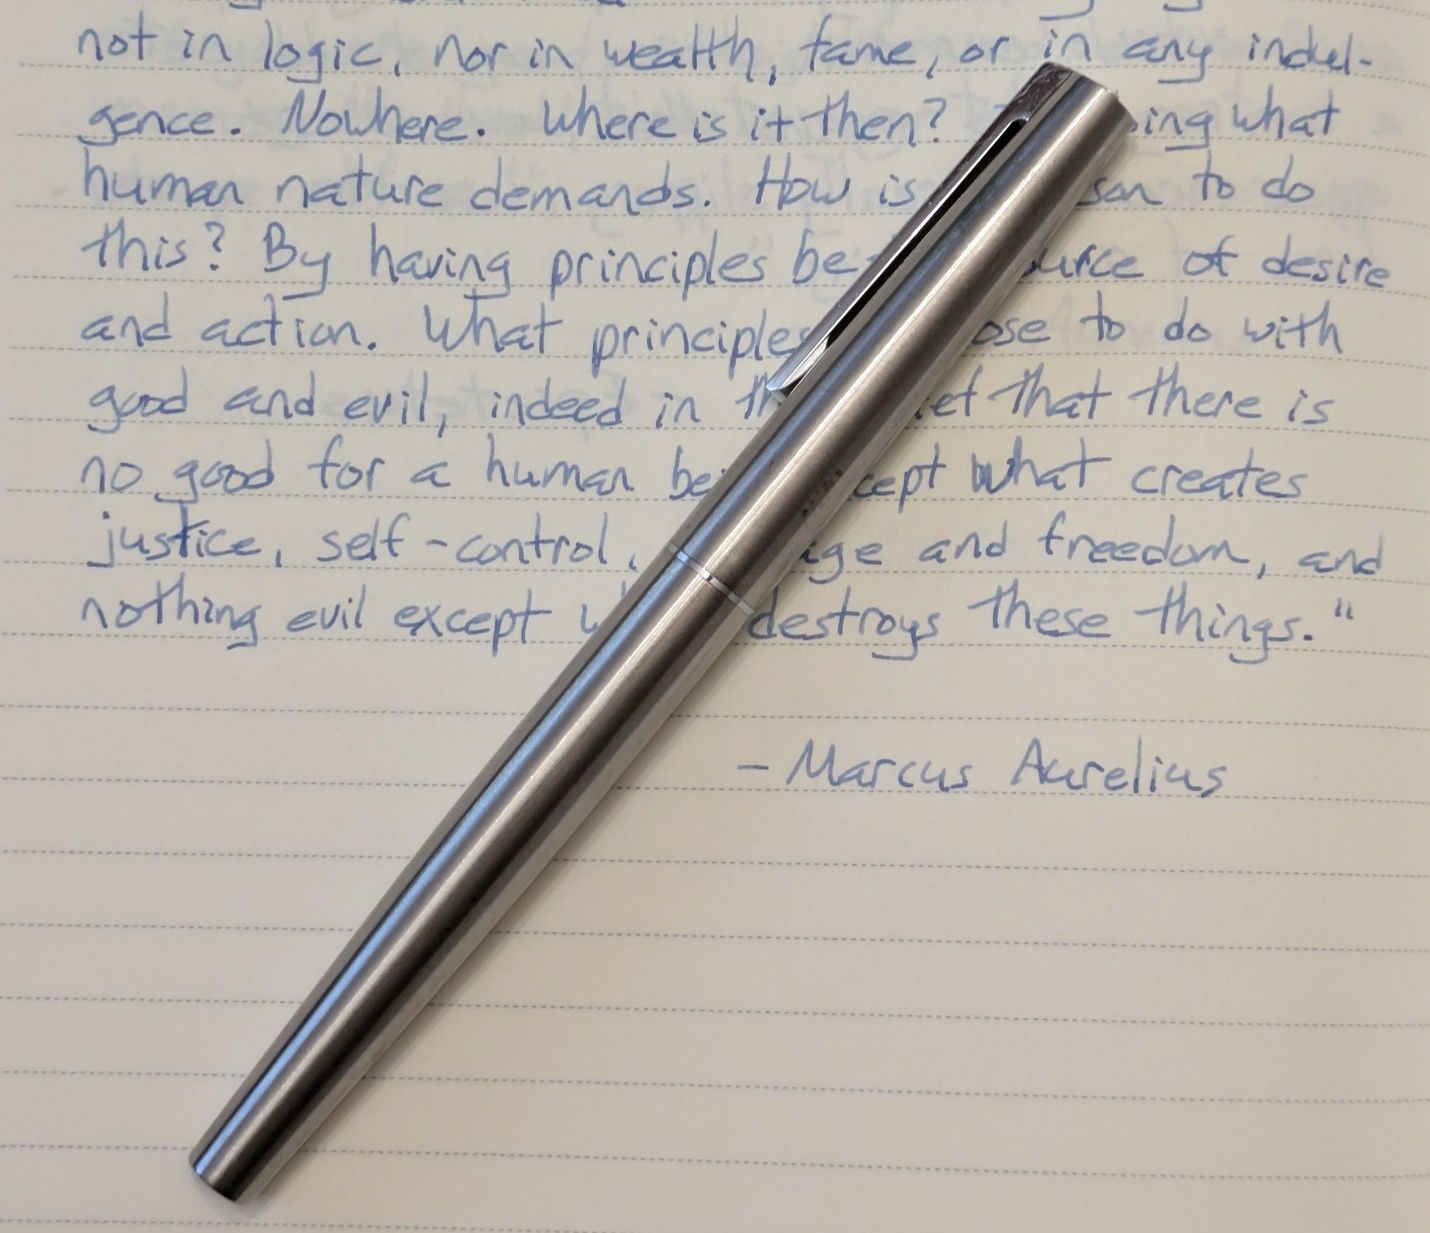 not in logic, nor in wealth, fame, or in any indul-
gence. Nowhere. Where is it then? what
human nature demands. How is to do
this? By having principles be of desire
and action. What principles to do with
good and evil, indeed in that there is
no good for a human what creates
justice, self-control, and freedom, and
nothing evil except destroys these things."
- Marcus Aurelius